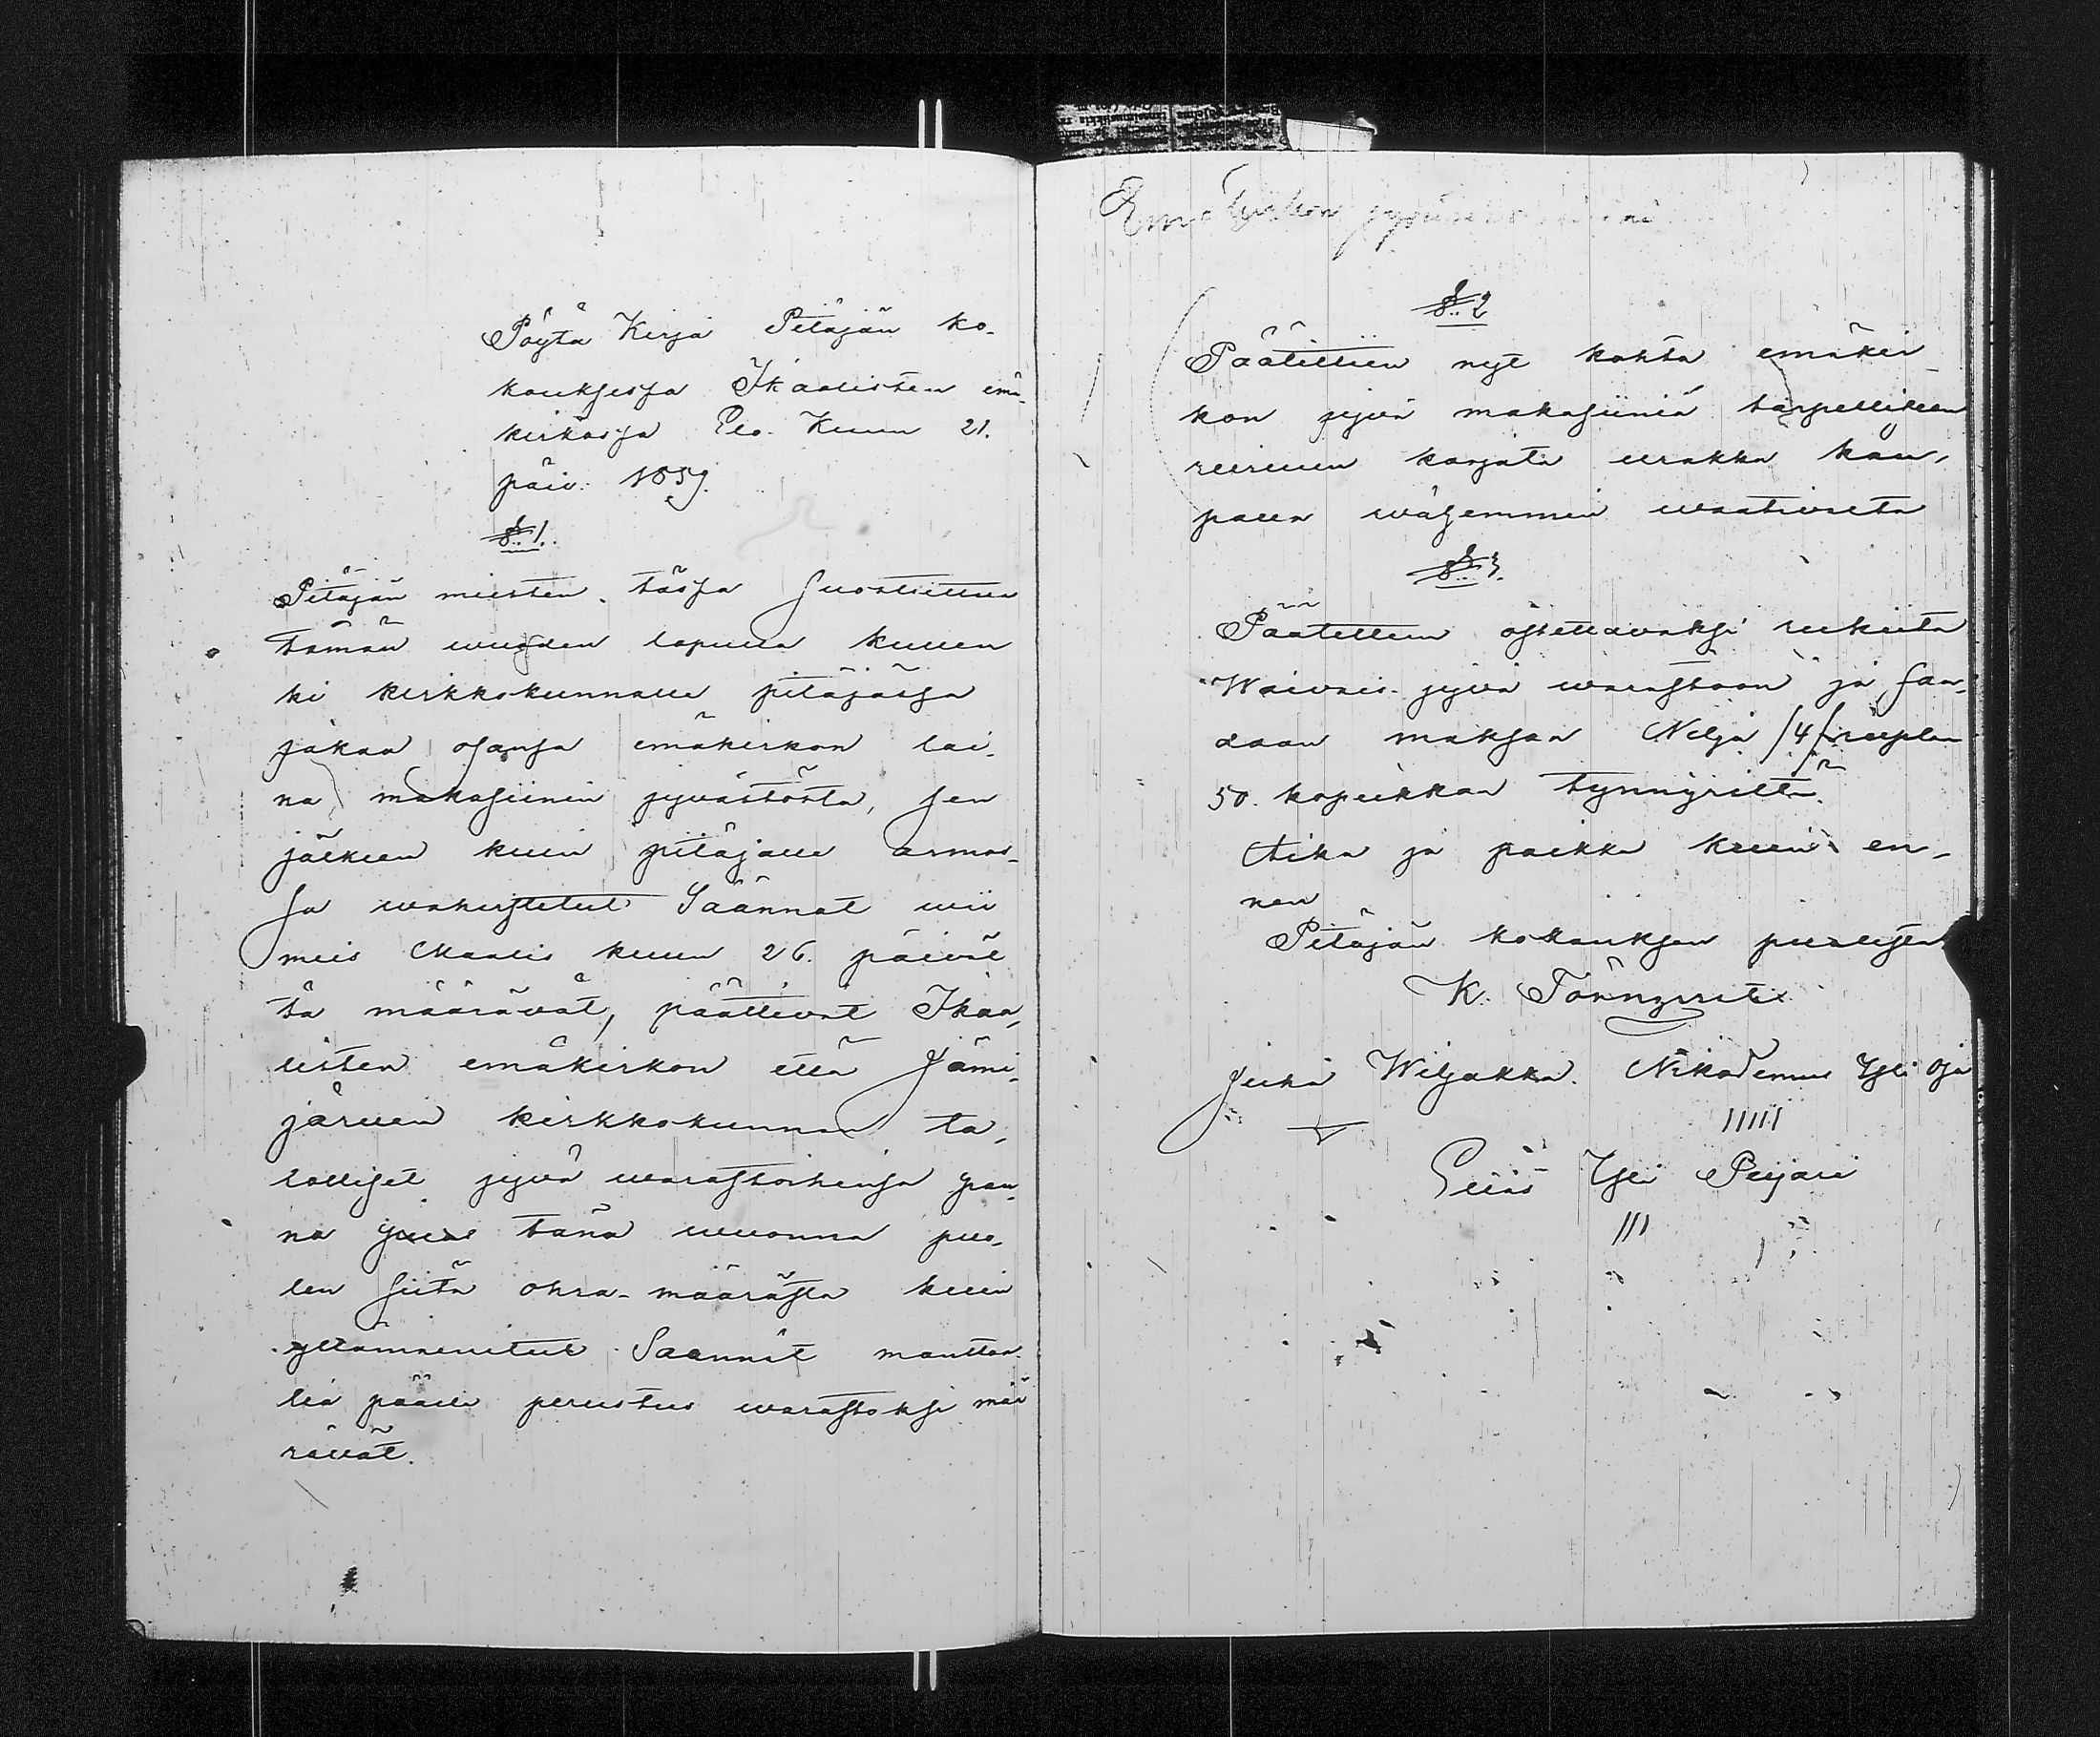 Pöytä Kirja Pitäjän ko-
kouksessa Ikaalisten emä-
kirkossa Elo Kuun 21.
päiv. 1859.
§ 1.
Pitäjän miesten tässä suostuttua
tämän wuoden lopulla kuuen
ki kirkkokunnalle pitäjässä
jakaa osansa emäkirkon lai-
na makasiinin jyvästöstä, sen
jälkeen kuin pitäjälle armos-
sa wahvistetut Säännöt wii
meis Maalis kuun 26. päiväl
tä määräävät, päättivät Ikaa-
listen emäkirkon että Jämi-
järven kirkkokunnan ta-
lolliset jyvä warastoihinsa pan-
na tänä wuonna puo-
len siitä ohra-määrästä kuin
yllämainitut Säännöt manttaa-
lia päälle perustus warastoksi mää
räävät.
Emä kirkon
§ 2
Päätettiin nyt kohta emäkir-
kon jyvä makasiiniä tarpellisesti
korjata urakka kau-
palla wähemmin waativalta
§ 3.
Päätettiin ostettavaksi rukiita
Waivais jyvä warastoon ja saa-
daan maksaa Neljä /4/ ruplaa
50. kopeikkaa tynnyriltä.
Aika ja paikka kuin en-
nen
Pitäjän kokouksen puolesta
K. Törnqvist
Juha Wiljakka. Nikodemus Yli Oja
Elias Yli Peijari